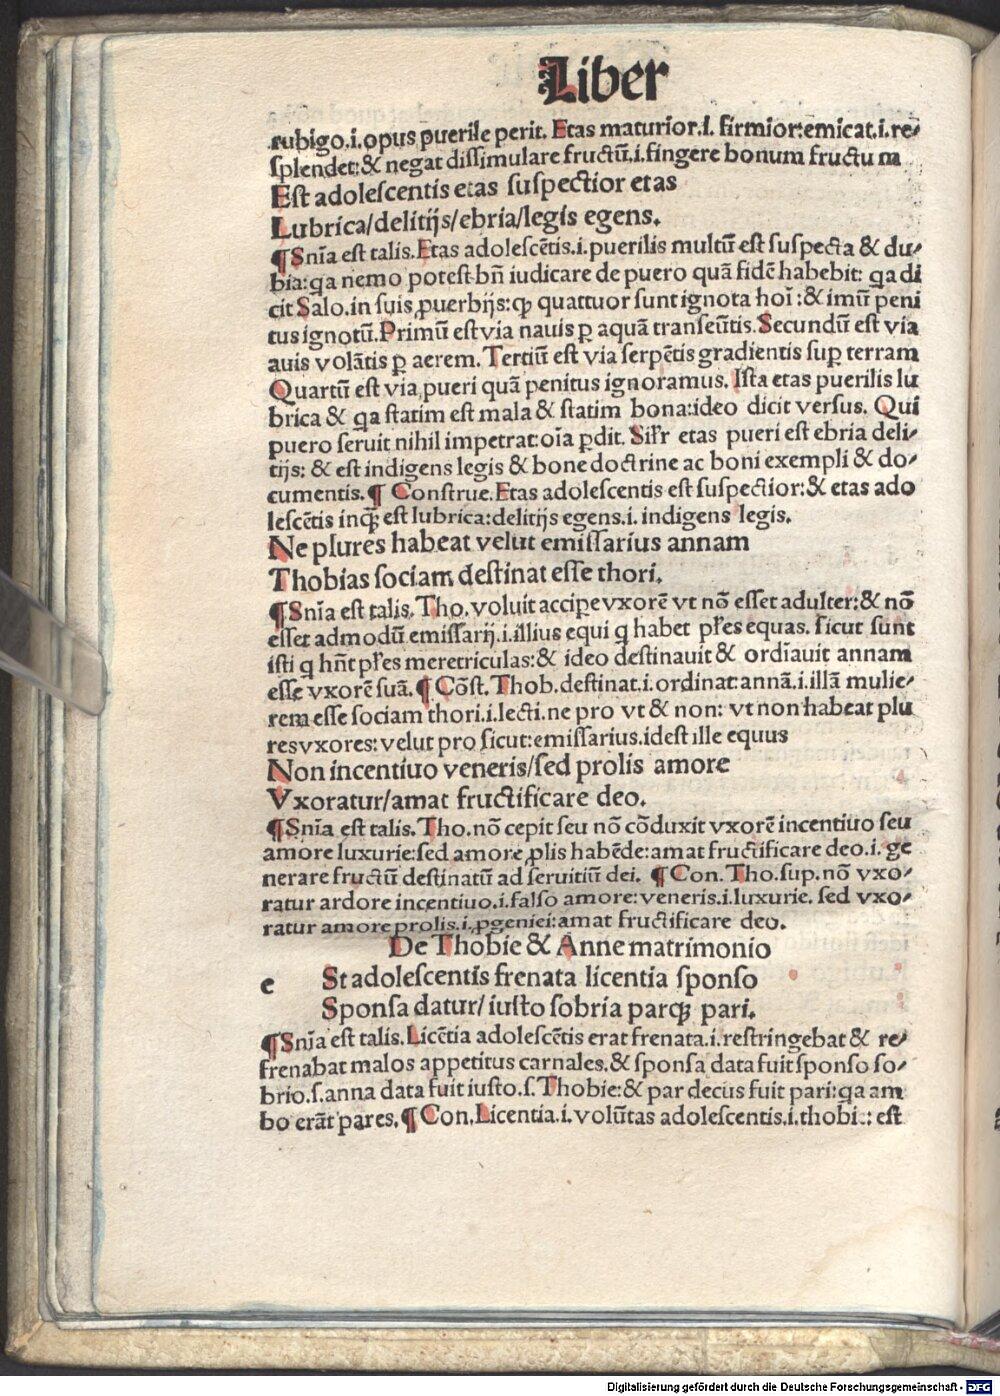 Liber
rubigo.i.opus puerile perit. Etas maturior.i. firmior:emicat.i.re⸗
splendet:& negat dissimulare fructū.i.fingere bonum fructum
Est adolescentis etas suspectior etas
Lubrica/delitijs/ebria/legis egens.
¶Snīa est talis.Etas adolescētis.i.puerilis multū est suspecta & du⸗
bia:qa nemo potest bn̄ iudicare de puero quā fidē habebit: qa di
cit Salo.in suis ꝓuerbijs:ꝙ quattuor sunt ignota hoī:& imū peni
tus ignotū.Primū est via nauis ꝑ aquā transeūtis.Secundū est via
auis volātis ꝑ aerem. Tertiū est via serpētis gradientis suꝑ terram
Quartū est via pueri quā penitus ignoramus. Ista etas puerilis lu
brica & qa statim est mala & statim bona:ideo dicit versus. Qui
puero seruit nihil impetrat:oīa ꝑdit. Silr̄ etas pueri est ebria deli⸗
tijs: & est indigens legis & bone doctrine ac boni exempli & do⸗
cumentis.¶ Construe.Etas adolescentis est suspectior:& etas ado
lescētis inqꝫ est lubrica:delitijs egens.i. indigens legis.
Ne plures habeat velut emissarius annam
Thobias sociam destinat esse thori.
¶Snīa est talis. Tho.voluit acciꝑe vxorē vt nō esset adulter:& nō
esset admodū emissarij.i.illius equi q habet pl̄es equas. sicut sunt
isti q hn̄t pl̄es meretriculas:& ideo destinauit & ordīauit annam
esse vxorē suā.¶ Cōst. Thob.destinat.i.ordinat:annā.i.illā mulie⸗
rem esse sociam thori.i.lecti.ne pro vt & non: vt non habeat plu
res vxores: velut pro sicut:emissarius.idest ille equus
Non incentiuo veneris/sed prolis amore
Vxoratur/amat fructificare deo.
¶Snīa est talis.Tho.nō cepit seu nō cōduxit vxorē incentiuo seu
amore luxurie:sed amore ꝓlis habēde:amat fructificare deo.i. ge
nerare fructū destinatū ad seruitiū dei. ¶Con.Tho.sup.nō vxo⸗
ratur ardore incentiuo.i.falso amore:veneris.i.luxurie. sed vxo⸗
ratur amore prolis.i.ꝓgeniei:amat fructificare deo.
De Thobie & Anne matrimonio
e St adolescentis frenata licentia sponso
Sponsa datur/ iusto sobria parqꝫ pari.
¶Snīa est talis.Licētia adolescētis erat frenata.i.restringebat & re⸗
frenabat malos appetitus carnales.& sponsa data fuit sponso so⸗
brio.s.anna data fuit iusto.s.Thobie:& par decus fuit pari:qa am
bo erāt pares.¶Con.Licentia.i.volūtas adolescentis.i.thobi.: est
Digitalisierung gefördert durch die Deutsche Forschungsgemeinschaft - DFG